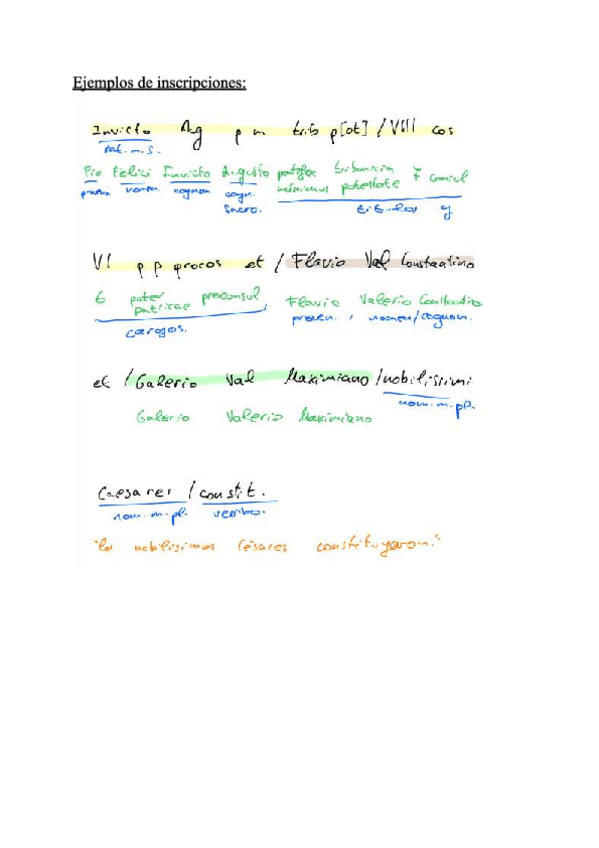 Ejemplos de inscripciones:
Invicto Aug p m trib p[ot] / VIII cos
dat. m. s.
Pio Felici Invicto Augusto pontifex tribunicia 7 consul
praen. nomen. cognom. cogn. maximus potestate
sacro. títulos y
VI p p procos et / Flavio Val Constantino
6 pater proconsul Flavio Valerio Constantino
patriae praen. / nomen/cognom.
cargos.
et / Galerio Val Maximiano / nobilissimi
nom. m. pl.
Galerio Valerio Maximiano
Caesares / constit.
nom. m. pl. verbo.
"los nobilísimos Césares constituyeron."